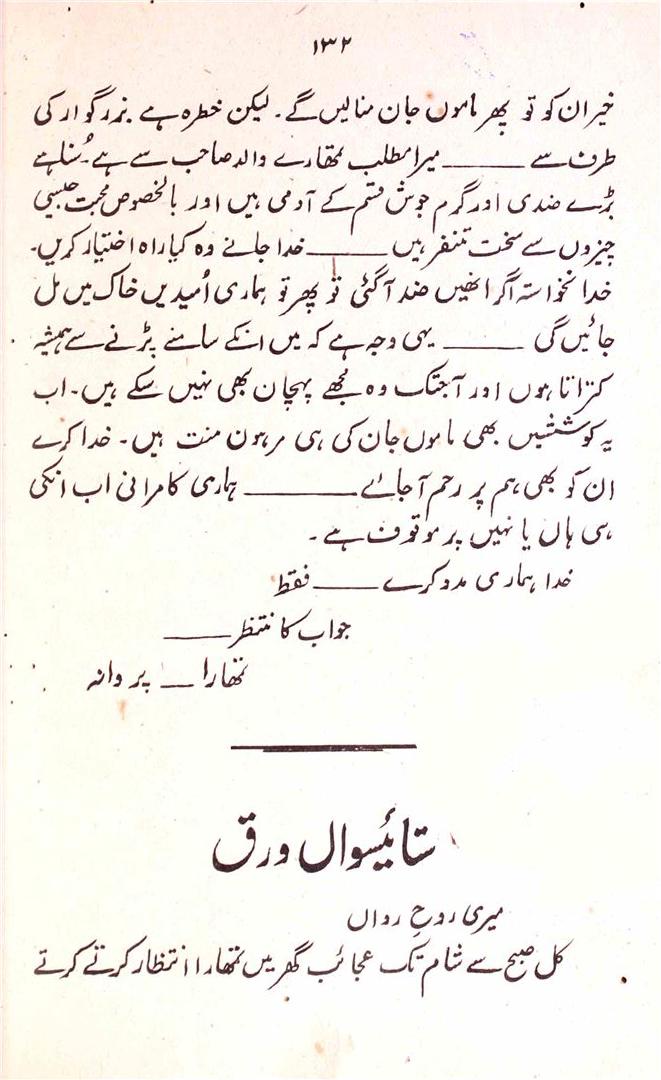 ۱۳۲
خیر ان کو تو پھر ماموں جان منا لیں گے۔ لیکن خطرہ ہے بزرگوار کی
طرف سے ــــــ میرا مطلب تمھارے والد صاحب سے ہے۔ سُنا ہے
بڑے ضدی اور گرم جوش قسم کے آدمی ہیں اور بالخصوص محبت جیسی
چیزوں سے سخت متنفر ہیں ــــــ خدا جانے وہ کیا راہ اختیار کریں۔
خدانخواستہ اگر انھیں ضد آ گئی تو پھر تو ہماری اُمیدیں خاک میں مل
جائیں گی ــــــ یہی وجہ ہے کہ میں انکے سامنے پڑنے سے ہمیشہ
کتراتا ہوں اور آجتک وہ مجھے پہچان بھی نہیں سکے ہیں۔ اب
یہ کوششیں بھی ماموں جان کی ہی مرہون منت ہیں۔ خدا کرے
ان کو بھی ہم پر رحم آ جائے ــــــ ہماری کامرانی اب انکی
ہی ہاں یا نہیں پر موقوف ہے۔
خدا ہماری مدد کرے ــــــ فقط
جواب کا منتظر ــــــ
تمھارا ـــ پروانہ
ستائیسواں ورق
میری روحِ رواں
کل صبح سے شام تک عجائب گھر میں تمھارا انتظار کرتے کرتے